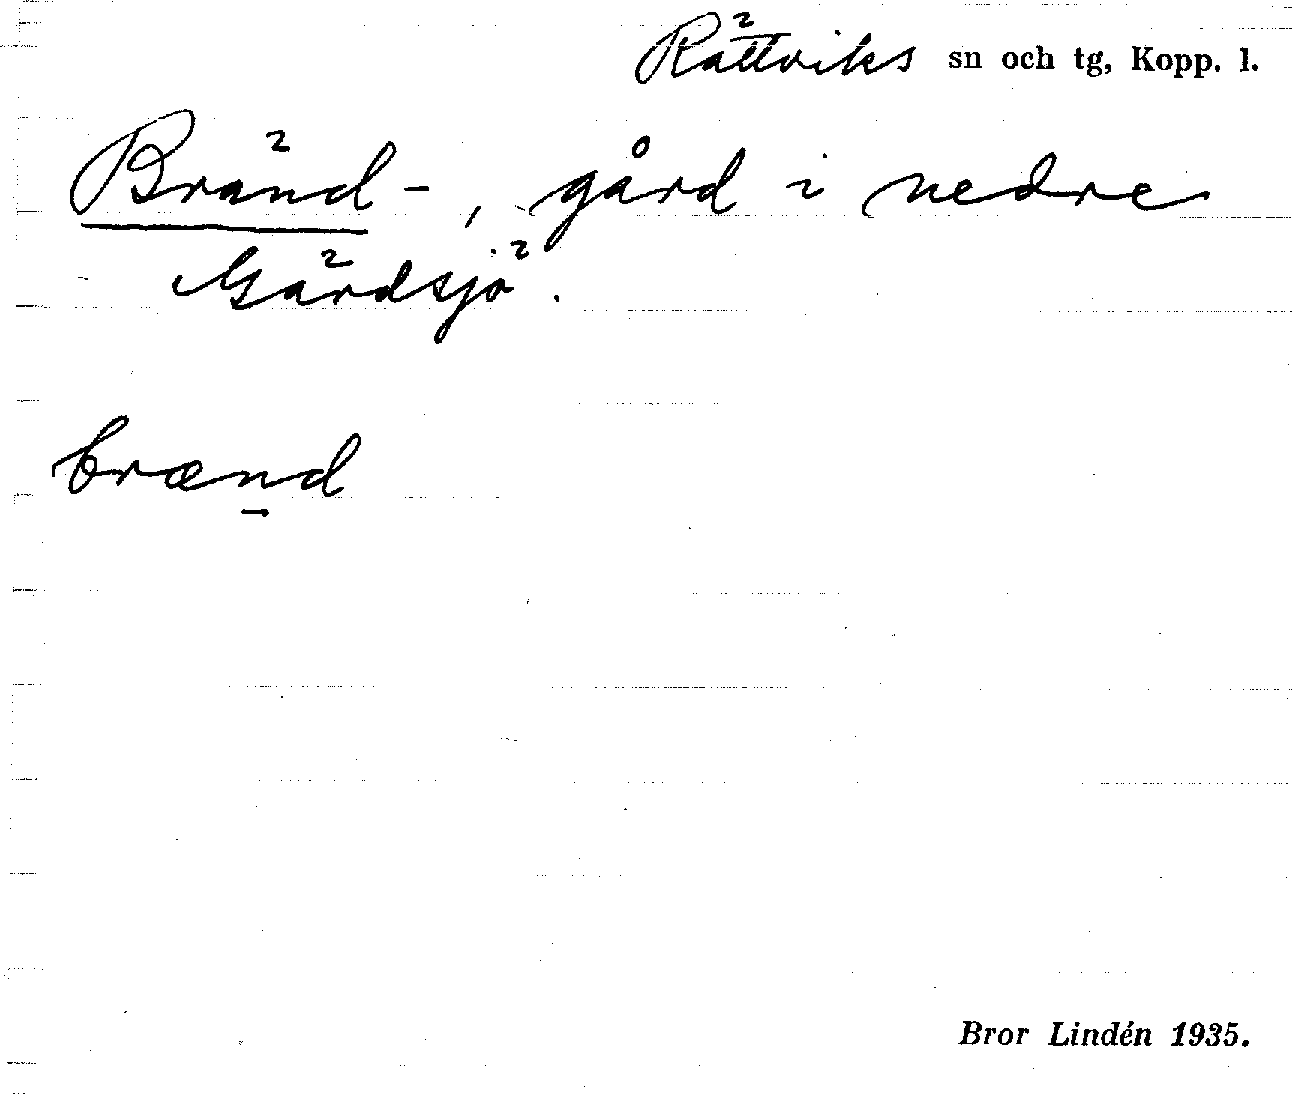 Rättviks sn och tg, Kopp. l.
Bränd-, gård i nedre
Gärdsjö.
brænd
Bror Lindén 1935.